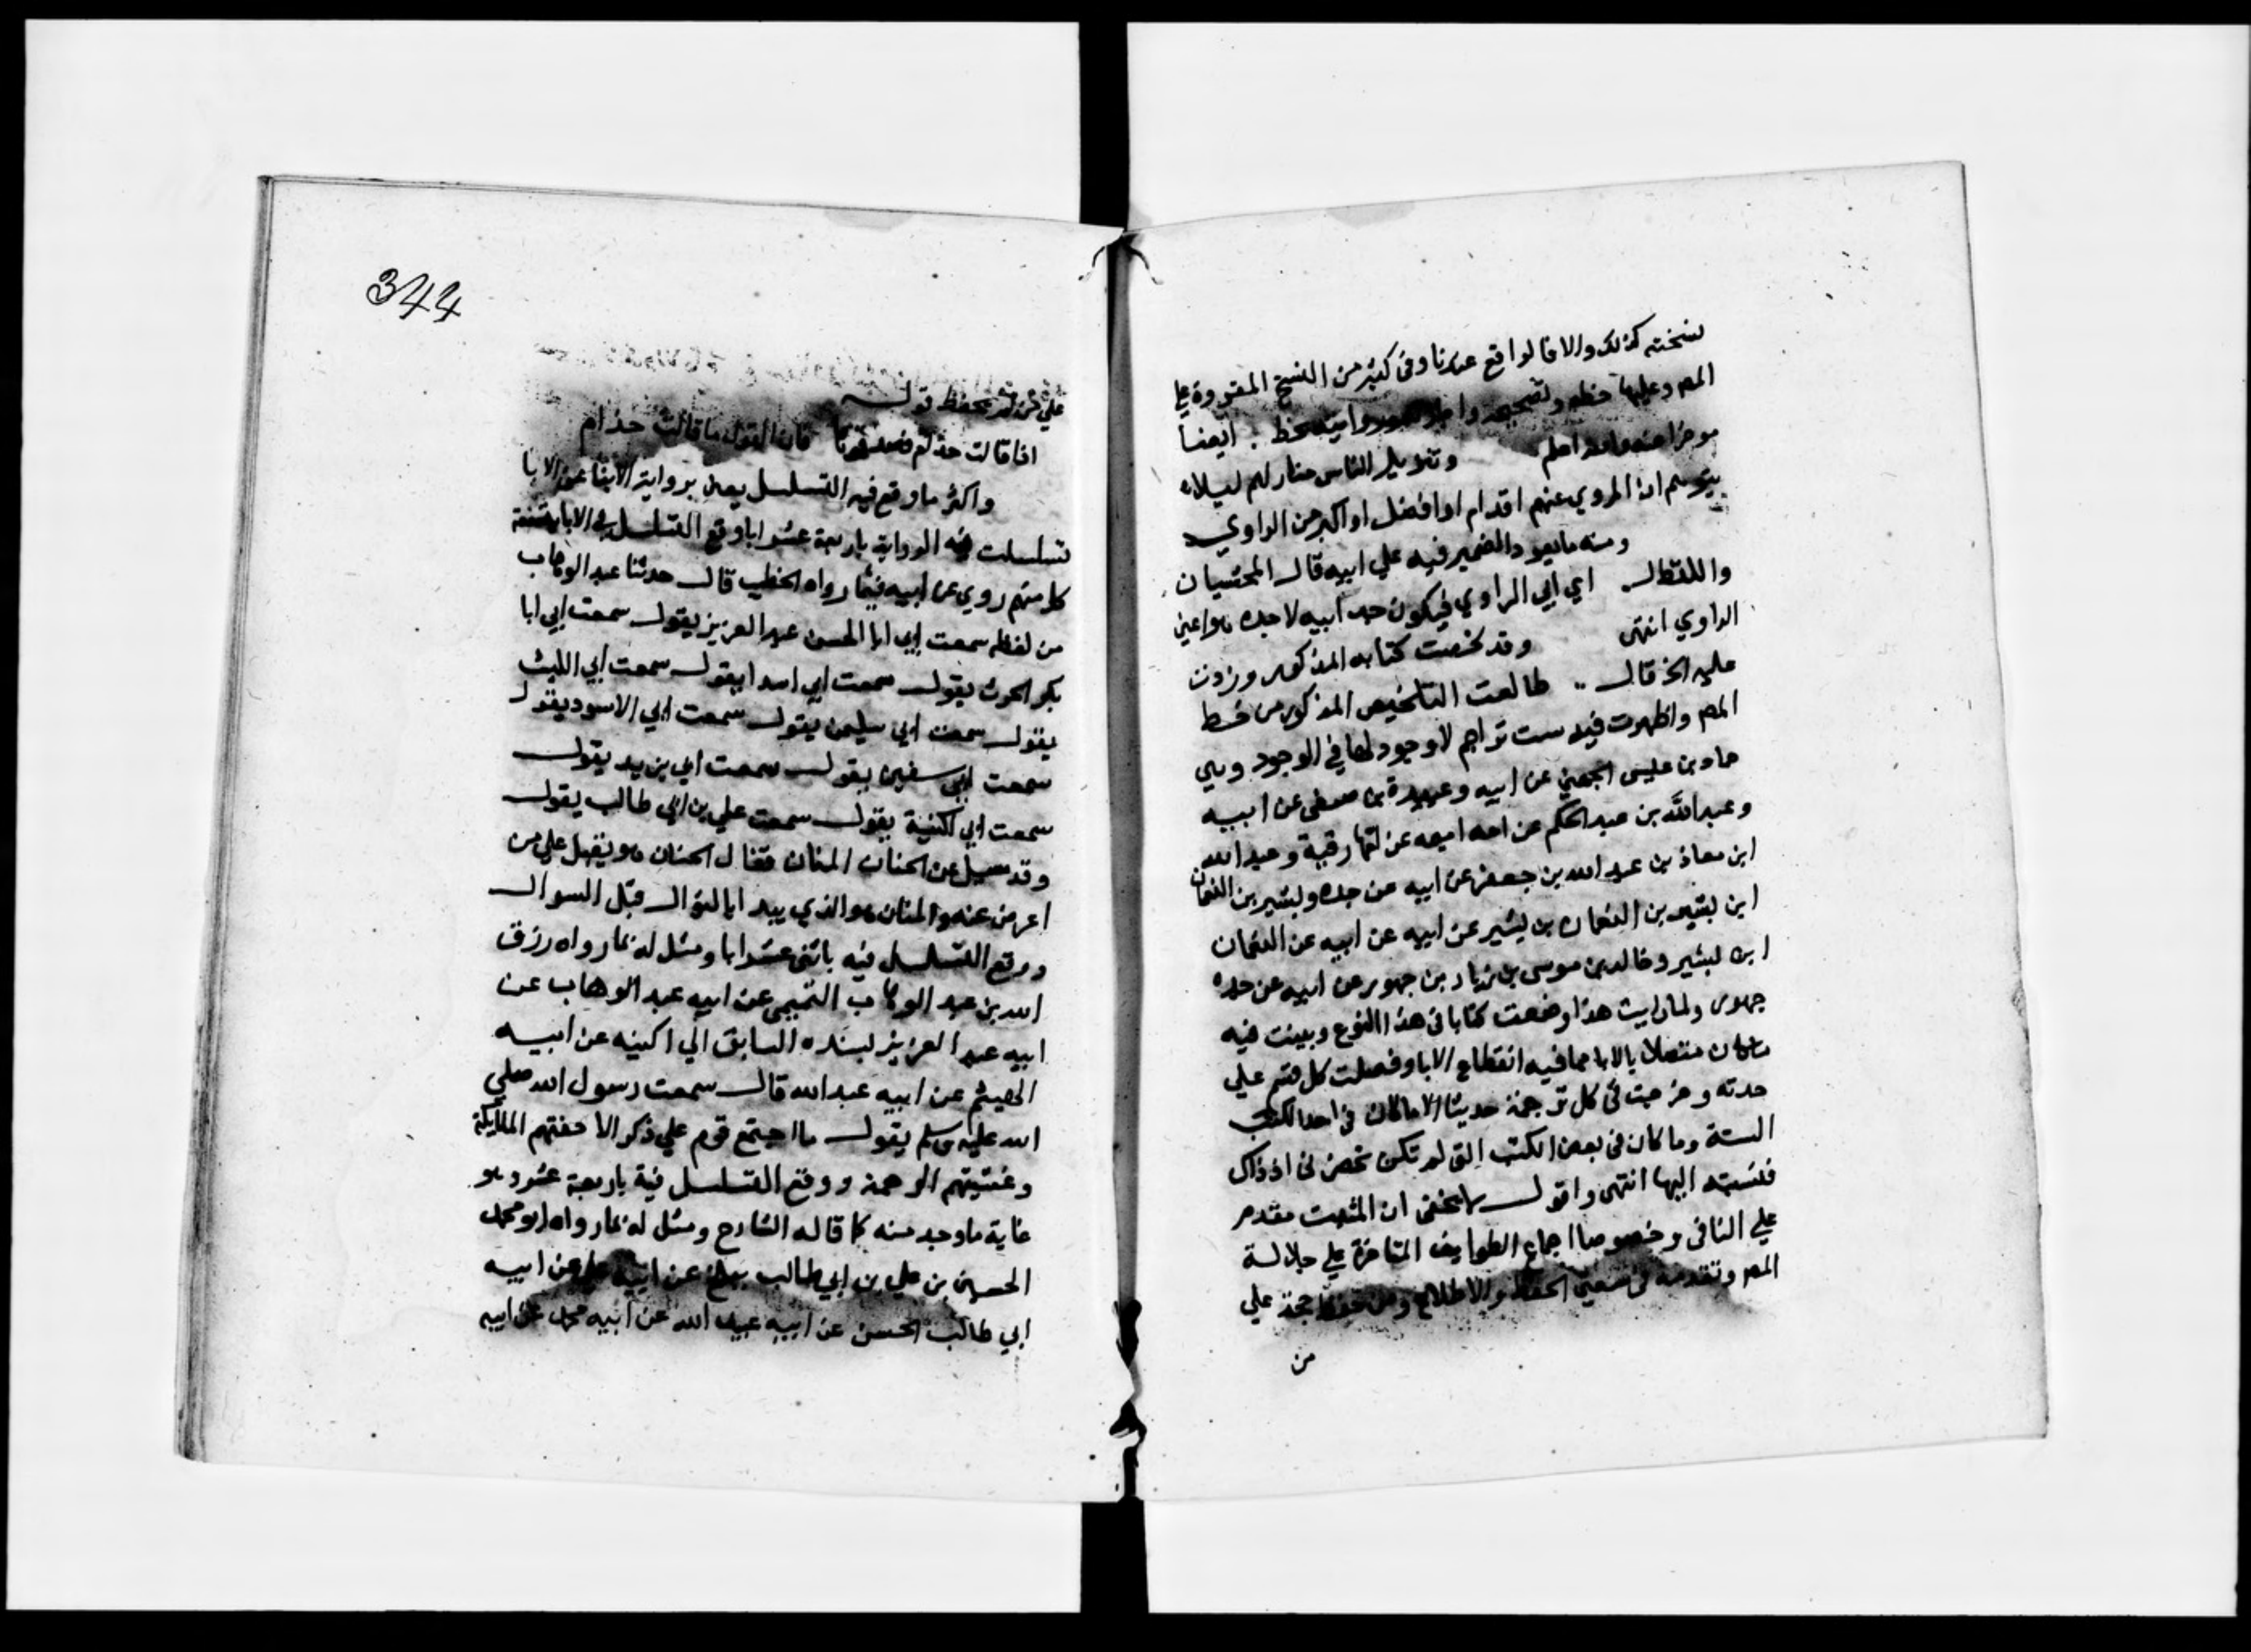 نسخته كذلك والا فالواقع عندنا وفي كثير من النسخ المقروة علي
المص وعليها خطه وتصحيحه
موخرا عنه والله اعلم وتنزيل الناس منازلهم ليلا
يتوهم ان المروي عنهم اقدام او افضل او اكبر من الراوي
ومنه ما يعود الضمير فيه علي ابيه قال المحشيان
واللفظ لـ اي ابي الراوي فيكون جد ابيه لا جده هو اعني
الراوي انتهى وقد لخصت كتابه المذكور وزدت
عليه الخ قال طالعت التلخيص المذكور من خط
المص واظهرت فيه ست تراجم لا وجود لها في الوجود وهي
حماد بن عيسى الجهني عن ابيه وعبيدة بن صيفي عن ابيه
وعبد الله بن عبد الحكم عن امه اميمه عن امها رقيقة وعبد الله
ابن معاذ بن عبد الله بن جعفر عن ابيه عن جده وبشير بن النعمان
ابن بشير بن النعمان بن بشير عن ابيه عن ابيه عن النعمان
ابن بشير وخالد بن موسى بن زياد بن جهور عن ابيه عن جده
جهور ولما رايت هذا وضعت كتابا في هذا النوع وبينت فيه
ما كان متصلا بالابا مما فيه انقطاع الابا وفصلت كل قسم علي
حدته وخرجت في كل ترجمة حديثا الا ما كان في احد الكتب
الستة وما كان في بعض الكتب التي لم تكن تحضرني اذ ذاك
فنسبته اليها انتهى واقول لا يخفى ان المثبت مقدم
علي النافي وخصوصا اجماع الطوايف المتاخرة علي جلالة
المص وتقدمه في الحفظ والاطلاع ومن حفظ حجة علي
من
344
علي من لم يحفظ قولـ
اذا قالت حذام فصدقوها فان القول ما قالت حذام
واكثر ما وقع فيه التسلسل يعني برواية الابنا عن الابا
تسلسلت فيه الرواية باربعة عشر ابا وقع التسلسل في الابا بتسعة
كل منهم روي عن ابيه فيما رواه الخطيب قال حدثنا عبد الوهاب
من لفظه سمعت ابي ابا الحسن عبد العزيز يقول سمعت ابي ابا
بكر الحرث يقول سمعت ابي اسدا يقول سمعت ابي الليث
يقول سمعت ابي سليمن يقول سمعت ابي الاسود يقول
سمعت ابي سفين يقول سمعت ابي يزيد يقول
سمعت ابي اكينة يقول سمعت علي بن ابي طالب يقول
وقد سيل عن الحنان المنان فقال الحنان هو يقبل علي من
اعرض عنه والمنان هو الذي يبدا بالنوال قبل السوال
ووقع التسلسل فيه باثنى عشر ابا ومثل له بما رواه رزق
الله بن عبد الوهاب التميمي عن ابيه عبد الوهاب عن
ابيه عبد العزيز بسنده السابق الي اكينه عن ابيه
الهيثم عن ابيه عبد الله قال سمعت رسول الله صلي
الله عليه وسلم يقول ما اجتمع قوم علي ذكر الا حفتهم الملايكة
وغشيتهم الرحمة ووقع التسلسل فية باربعة عشر وهو
غاية ما وجد منه كما قاله الشارح ومثل له بما رواه ابو محمد
الحسين بن علي بن ابي طالب ببلخ عن ابيه علي عن ابيه
ابي طالب الحسن عن ابيه عبيد الله عن ابيه محمد عن ابيه